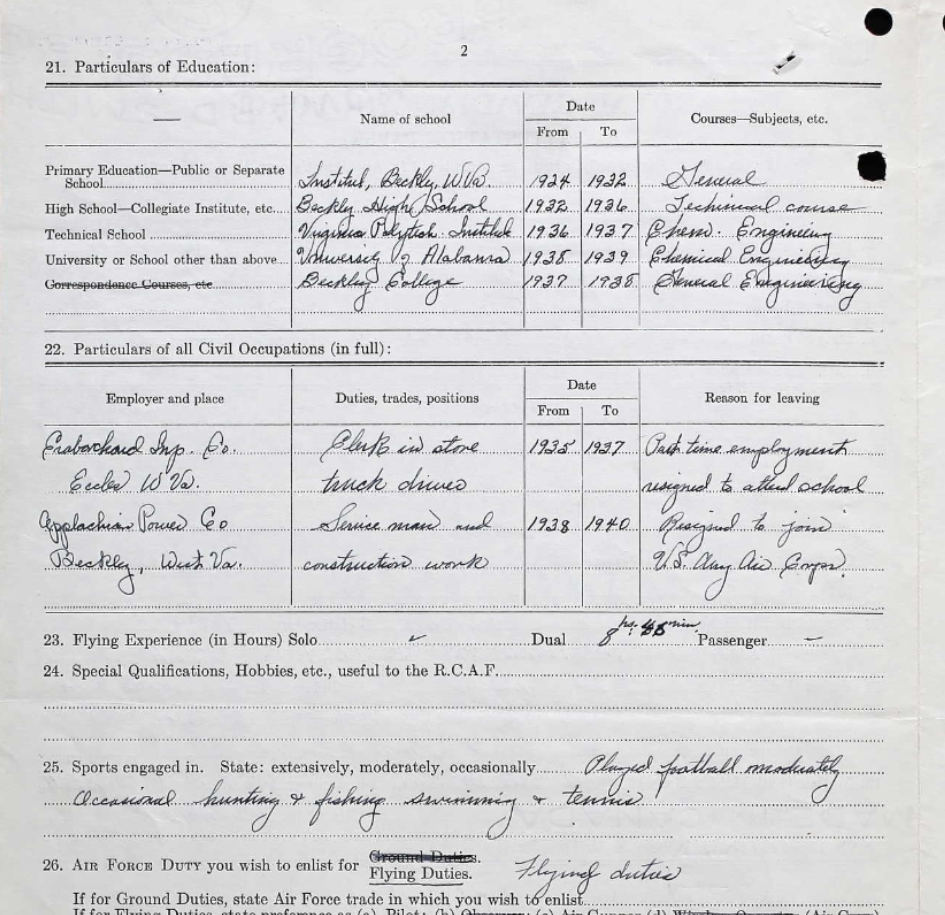 2
21. Particulars of Education:
Name of school Date Courses—Subjects, etc.
From To
Primary Education—Public or Separate
School Institut, Beckly, W.Va. 1924 1932 General
High School—Collegiate Institute, etc. Beckly High School 1932 1936 Techinical course
Technical School Virginia Polytech. Institute 1936 1937 Chem. Engineering
University or School other than above University of Alabama 1938 1939 Chemical Engineering
Correspondence Courses, etc Beckley College 1937 1938 General Engineering
22. Particulars of all Civil Occupations (in full):
Employer and place Duties, trades, positions Date Reason for leaving
From To
Co. Clerk in store 1935 1937 Part time employment
Eccles W Va. truck driver resigned to attend school
Applachian Power Co Service man and 1938 1940 Resigned to join
Beckly, West Va. construction work U.S. Army Air Corps.
23. Flying Experience (in Hours) Solo Dual 8 hrs. min. Passenger —
24. Special Qualifications, Hobbies, etc., useful to the R.C.A.F.
25. Sports engaged in. State: extensively, moderately, occasionally Played football moderately
Occasional hunting & fishing swimming & tennis
26. AIR FORCE DUTY you wish to enlist for Ground Duties.
Flying Duties. Flying duties
If for Ground Duties, state Air Force trade in which you wish to enlist